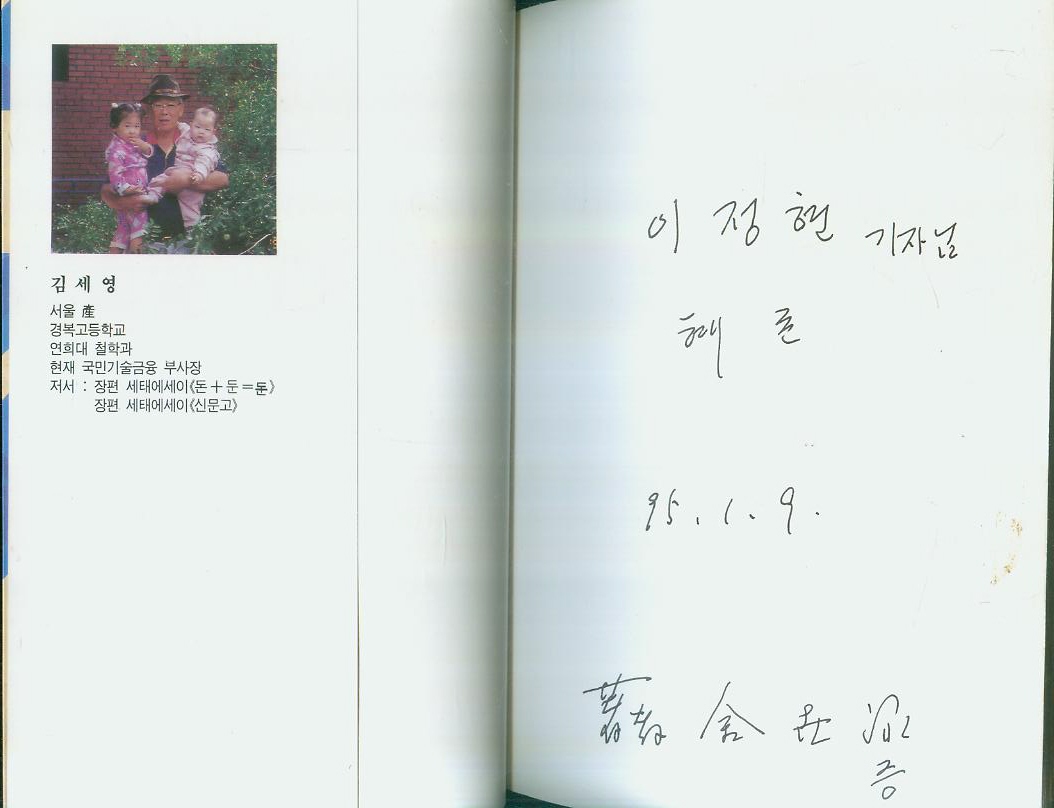 김 세 영
서울 産
경복고등학교
연희대 철학과
현재 국민기술금융 부사장
저서 : 장편 세태에세이《돈＋둔＝둔》
장편 세태에세이《신문고》
이 정 현 기자님
혜 존
95. 1. 9.
著者 金 世 泳
증